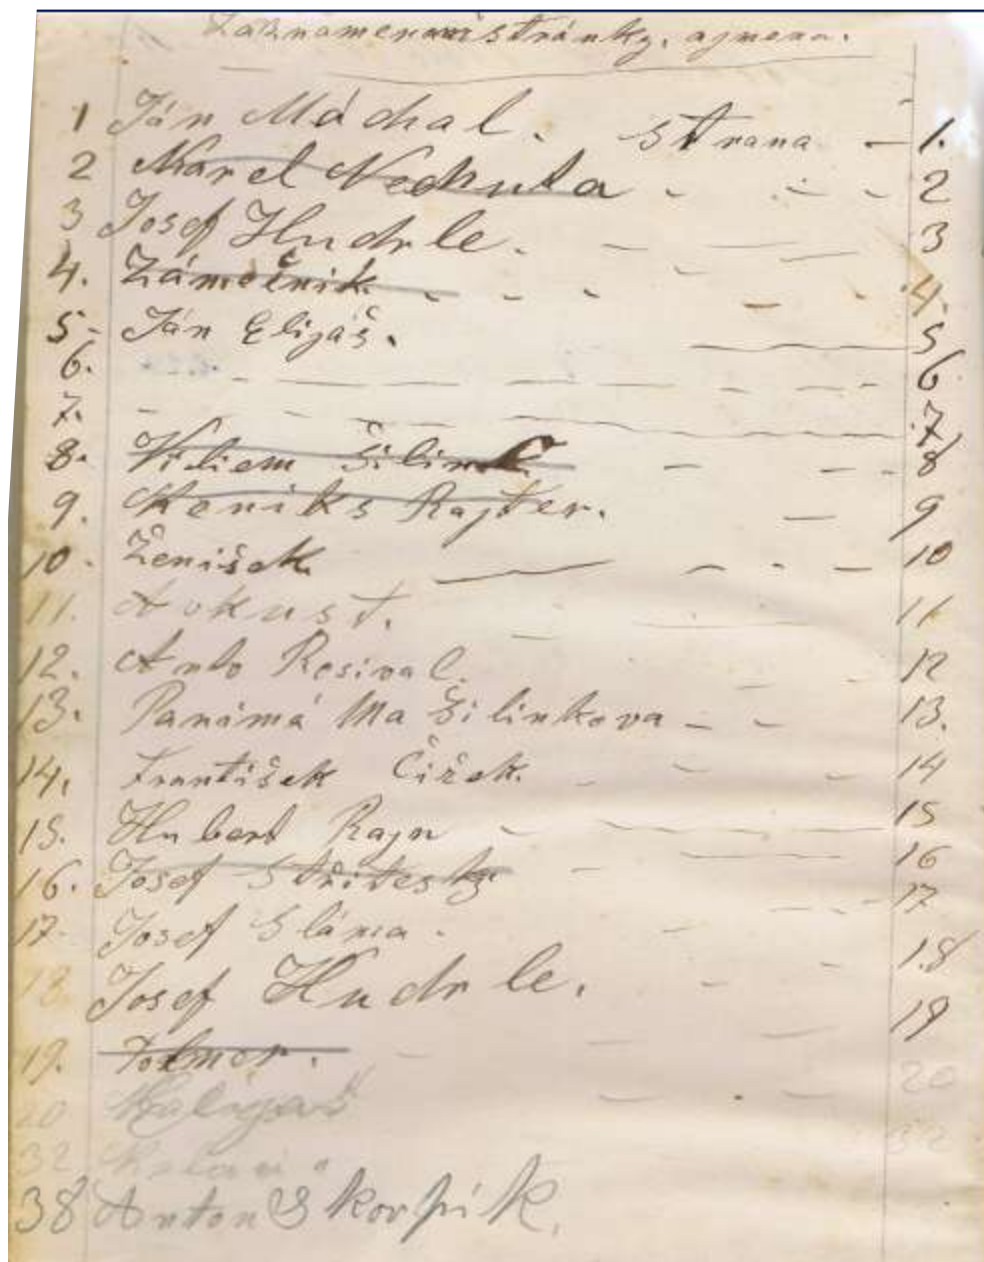 Zaznamenani stránky. a jmena.
1 Ján Máchal. Strana - 1.
2 Karel Nechuta - - - 2
3 Josef Hudrle. - - - 3
4. Zámečnik - - - - 4.
5- Ján Elijáš. 5
6. - - - - 6
7. - - - - 7
8. Viliem Šilinek - - 8
9. Heniks Rajter. - 9
10. Ženišek - - - 10
11. Avkust. 11
12. Anto Rosival. 12
13. Panímá Ma Šilinkova - - 13.
14. František Čižek. - - - 14
15. Hubert Rajn - - - 15
16. Josef Střítesky - - 16
17. Josef Sláma. - - - 17
18. Josef Hudrle. - - 18
19. - - - 19
20 - - - 20
32 32
38 Anton Skorpík.